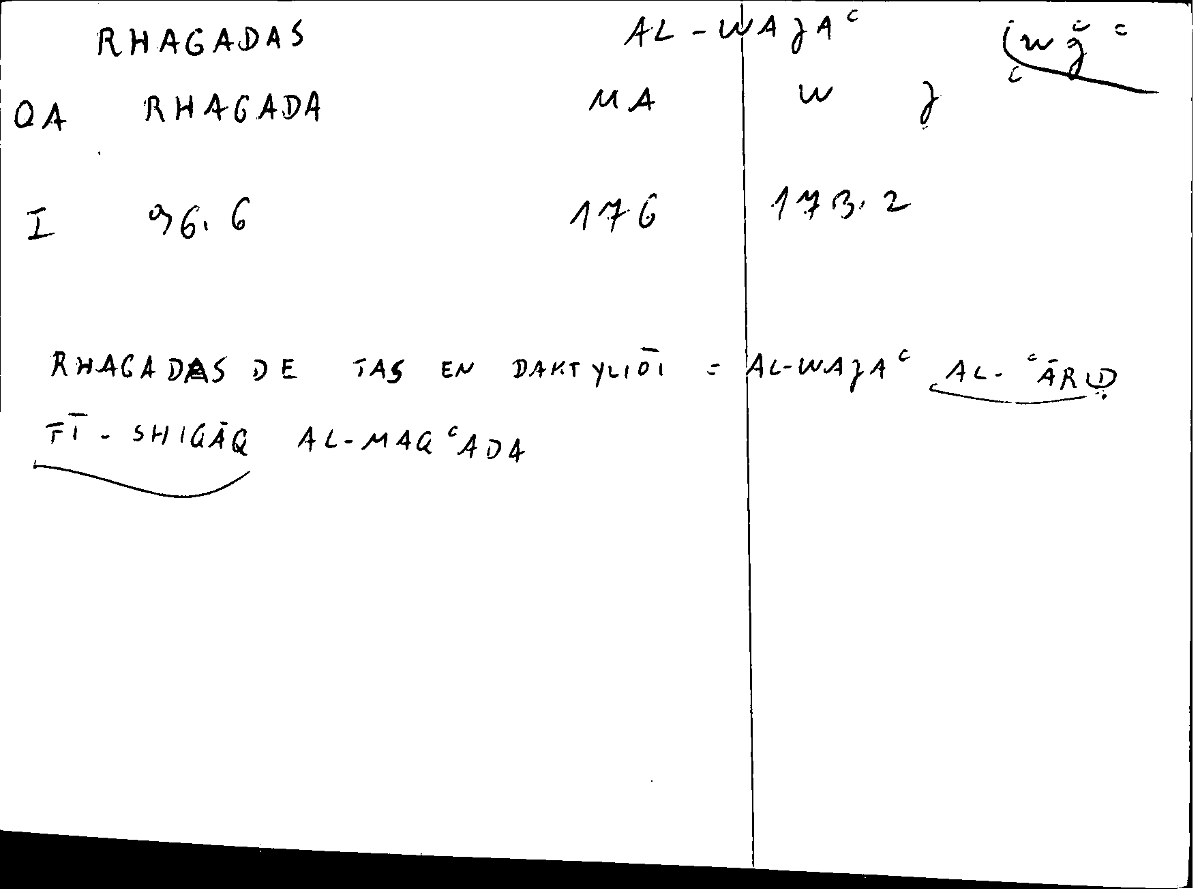 RHAGADAS AL-WAJAʿ wǧʿ
QA RHAGADA MA W J ʿ
I 96.6 176 173.2
RHAGADAS DE TAS EN DAKTYLIŌI = AL-WAJAʿ AL-ʿĀRIḌ
FĪ-SHIQĀQ AL-MAQʿADA